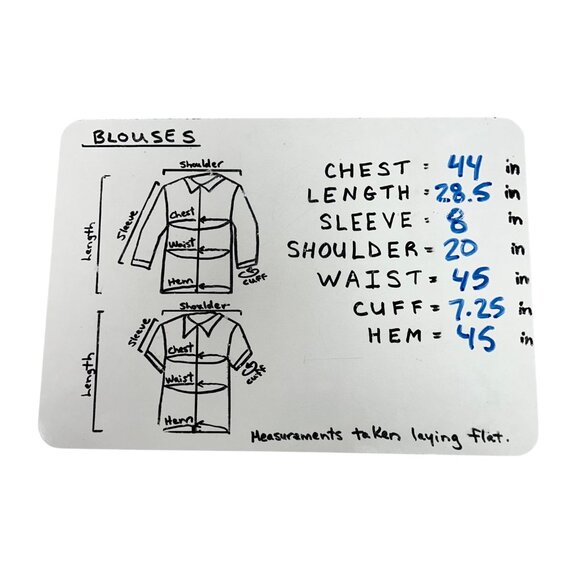 BLOUSES
Shoulder
Length
Sleeve
Chest
Waist
Hem
Cuff
Shoulder
Length
Sleeve
Chest
Waist
Hem
Cuff
CHEST = 44 in
LENGTH = 28.5 in
SLEEVE = 8 in
SHOULDER = 20 in
WAIST = 45 in
CUFF = 7.25 in
HEM = 45 in
Measurements taken laying flat.